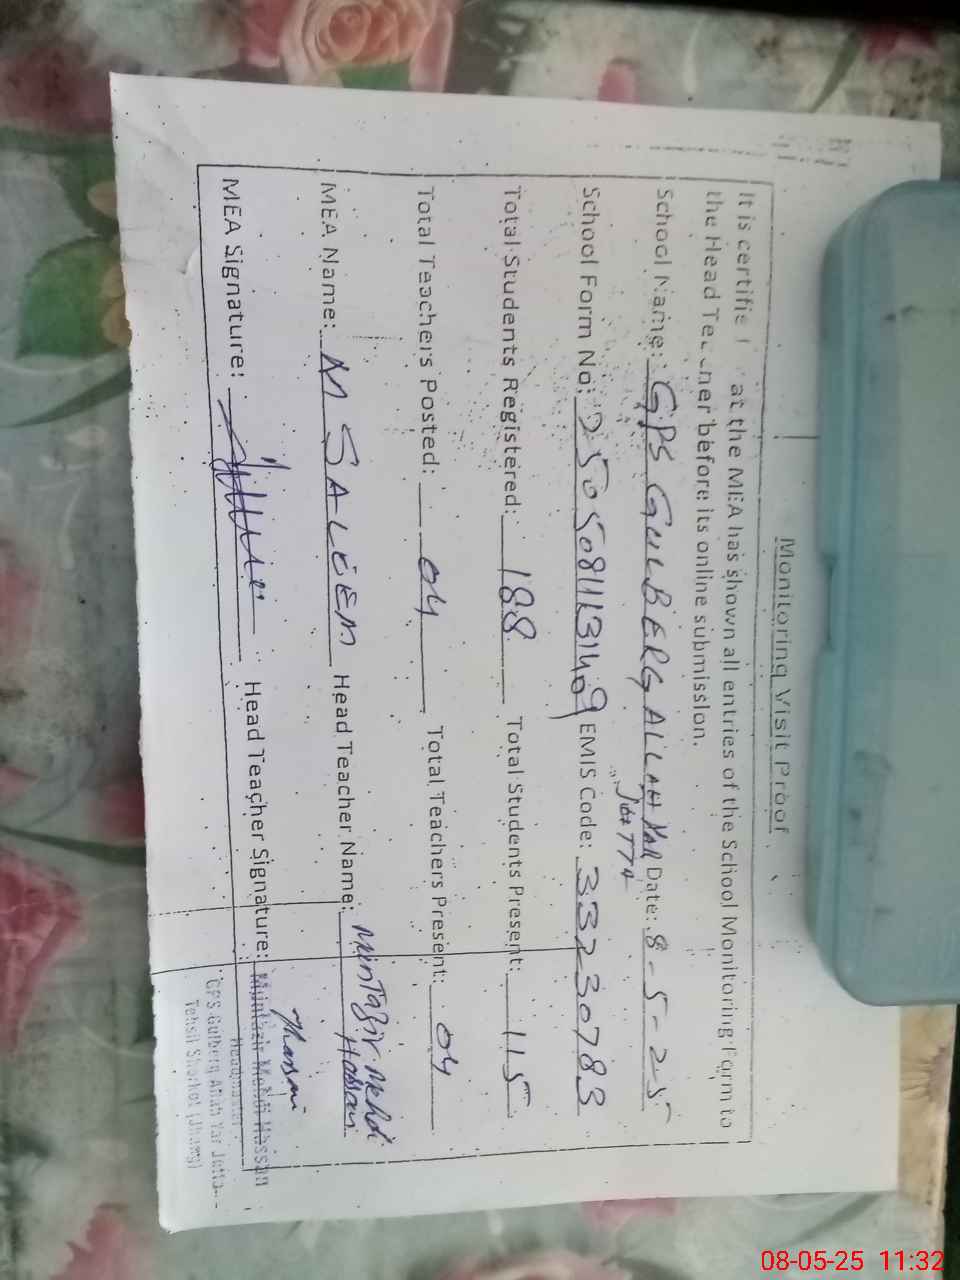 Monitoring Visit Proof
It is certifie at the MEA has shown all entries of the School Monitoring Form to
the Head Teacher before its online submission.
School Name: GPS GULBERG ALLAH YAR Date: 8-5-25
JUTTA
School Form No: EMIS Code: 33230783
Total Students Registered: 188 Total Students Present: 115
Total Teachers Posted: 04 Total Teachers Present: 04
MEA Name: M SALEEM Head Teacher Name: Muntazir Mehdi
Hassan
MEA Signature: Head Teacher Signature:
Muntazir Mehdi Hassan
Headmaster
GPS Gulberg Allah Yar Jutta
Tehsil Shorkot (Jhang)
08-05-25 11:32